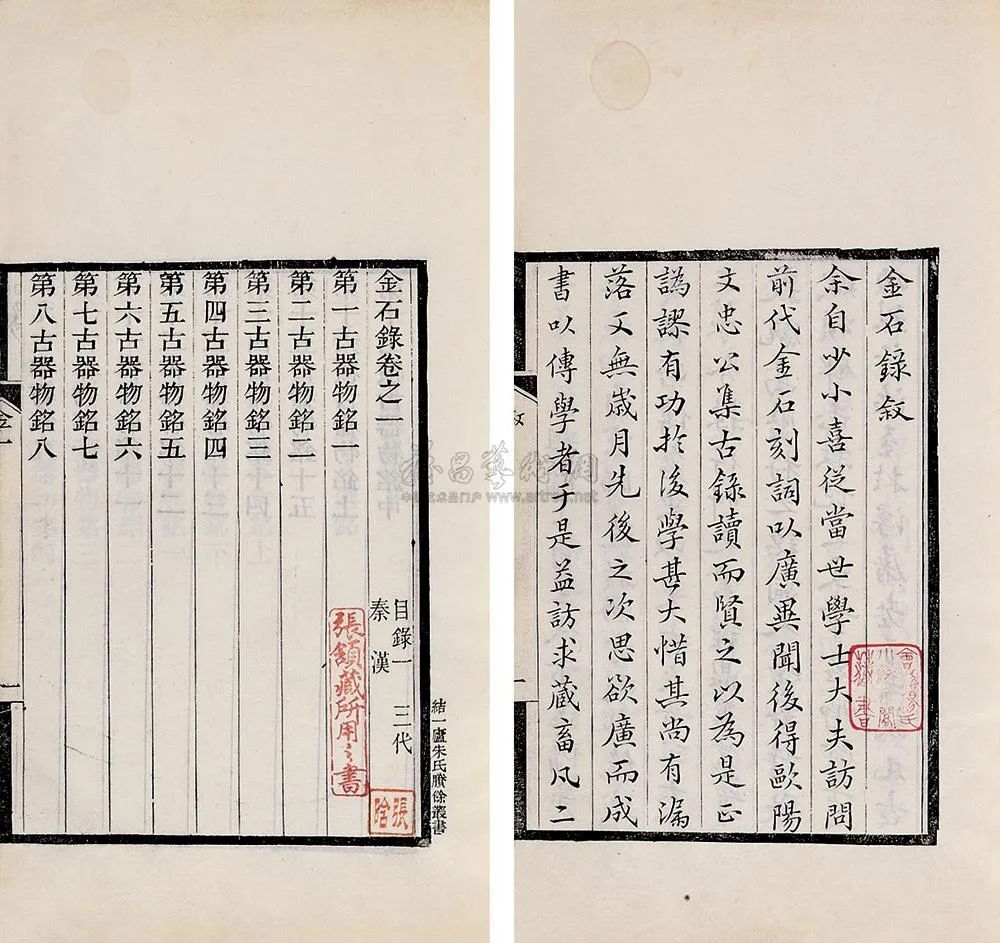 金石錄敘
余自少小喜從當世學士大夫訪問
前代金石刻詞以廣異聞後得歐陽
文忠公集古錄讀而賢之以為是正
譌謬有功於後學甚大惜其尚有漏
落又無歲月先後之次思欲廣而成
書以傳學者于是益訪求藏畜凡二
金石錄卷之一
目錄一 三代
秦 漢
第一古器物銘一
第二古器物銘二
第三古器物銘三
第四古器物銘四
第五古器物銘五
第六古器物銘六
第七古器物銘七
第八古器物銘八
結一廬朱氏賸餘叢書
張頷藏所用之書